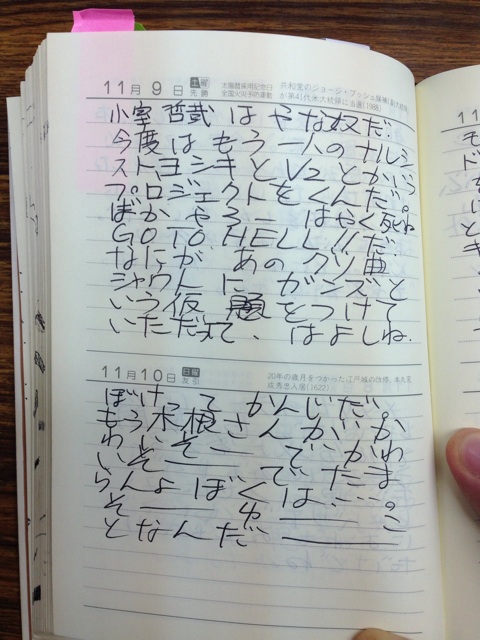 11月9日 土曜 先勝
太陽暦採用記念日
全国火災予防運動
共和党のジョージ・ブッシュ
が第41代米大統領に当選(1988)
小室哲哉はやな奴だ!
今度はもう一人のナルシ
スト、ヨシキとV2とかいう
プロジェクトをくんだ。
ばかやろーはやく死ね
GO TO HELL!!だ!
なにが、あのクソ曲
ジャウトにがンズと
いう仮題をつけて
いただって、はよしね.
11月10日 日曜 友引
20年の歳月をつかった江戸城の改修、本丸
成秀忠入居(1622)
ぼけってかんじだ。
もう木根さんがか
わいそーでかわ
いそーでたま
らんよぼくは…。
そーゆーこ
となんだ
11
モ